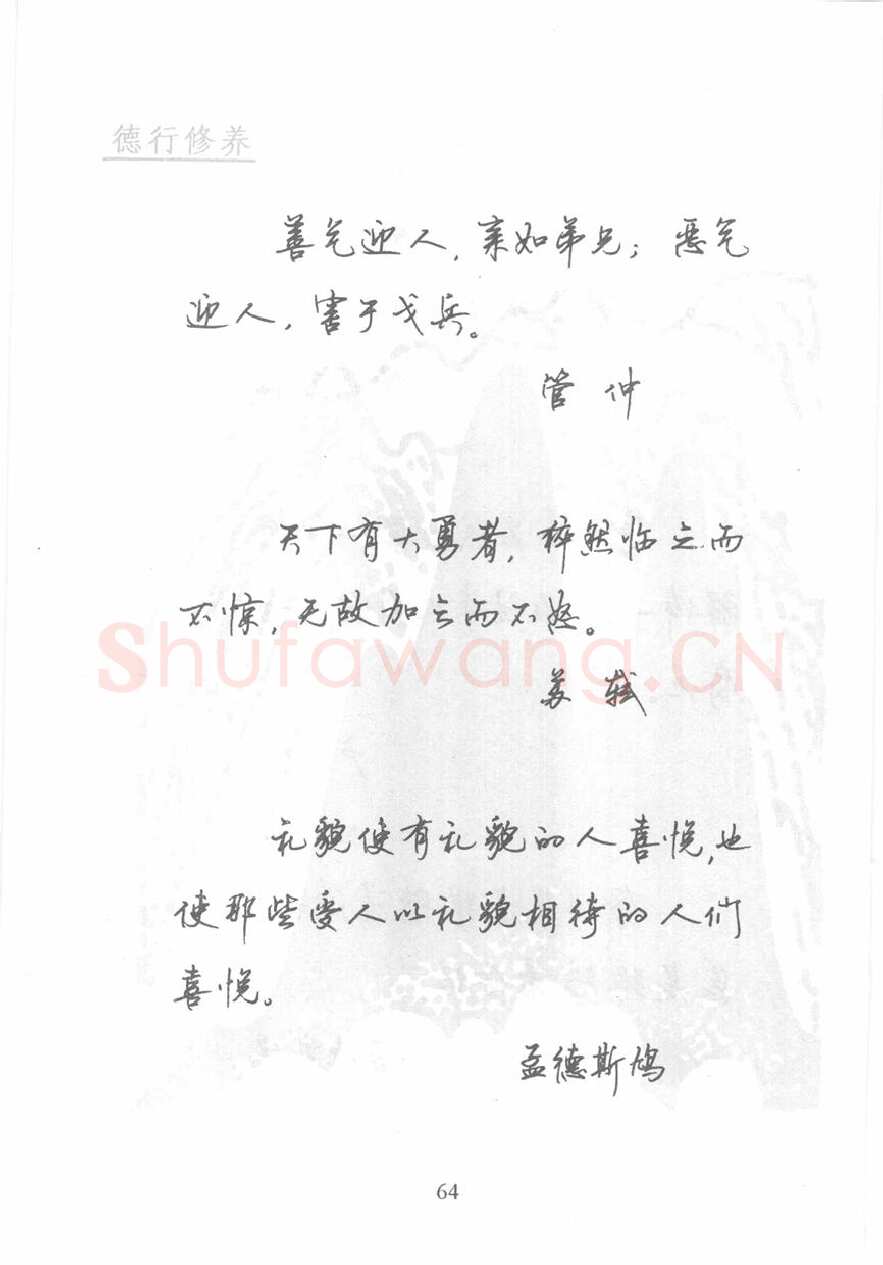 德行修养
善气迎人，亲如弟兄；恶气
迎人，害于戈兵。
管 仲
天下有大勇者，猝然临之而
不惊，无故加之而不怒。
Shufawang.CN
苏 轼
礼貌使有礼貌的人喜悦，也
使那些受人以礼貌相待的人们
喜悦。
孟德斯鸠
64